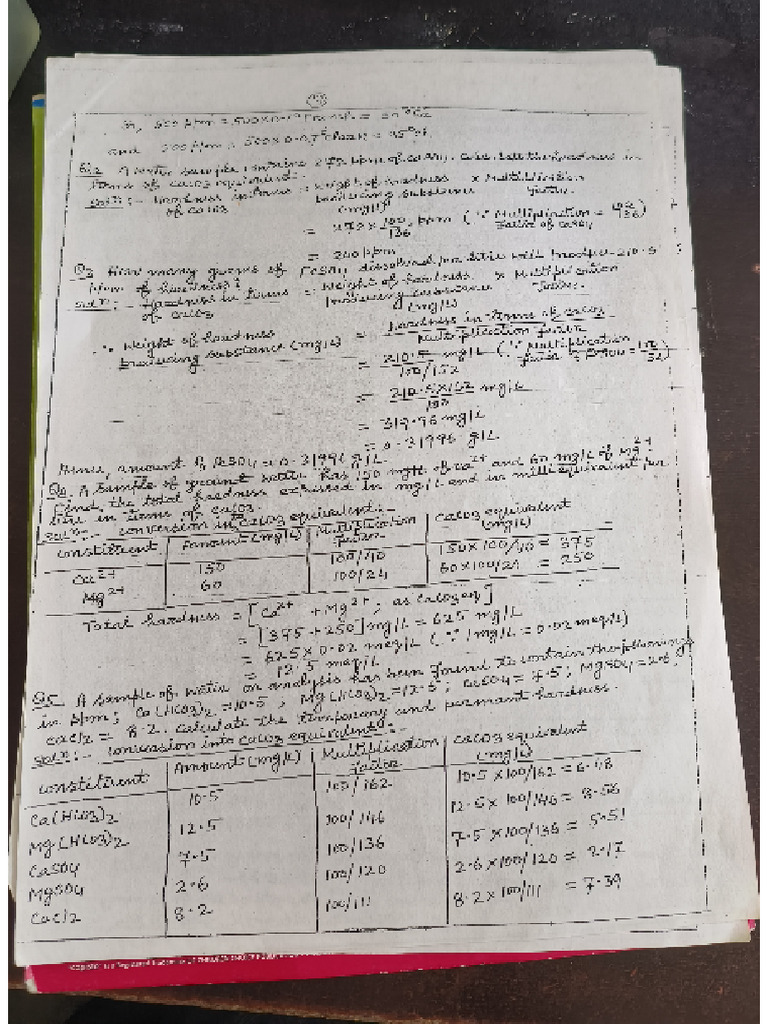 and 500 ppm = 500 x 0.07
Q.2 A water sample contains 272 ppm of CaSO4. Calculate the hardness in
terms of CaCO3 equivalent.
Soln:- Hardness in terms = Weight of hardness x Multiplication
of CaCO3 producing substance factor.
(mg/L)
= 272 x 100/136 ppm (∵ Multiplication = 100/136)
factor of CaSO4
= 200 ppm
Q.3 How many grams of FeSO4 dissolved per litre will produce 210.5
ppm of hardness?
Soln:- Hardness in terms = Weight of hardness x Multiplication
of CaCO3 producing substance factor.
(mg/L)
∴ Weight of hardness = Hardness in terms of CaCO3
producing substance (mg/L) Multiplication factor
= 210.5 mg/L (∵ Multiplication
100/152 factor
= 210.5x162 mg/L
100
= 319.96 mg/L
= 0.31996 g/L
Hence, amount of FeSO4 = 0.31996 g/L
Q4. A sample of ground water has 150 mg/L of Ca2+ and 60 mg/L of Mg2+.
Find the total hardness expressed in mg/L and in milliequivalent per
litre in terms of CaCO3.
Soln:- conversion in CaCO3 equivalent:-
constituent Amount (mg/L) Multiplication factor CaCO3 equivalent (mg/L)
Ca2+ 150 100/40 150x100/40 = 375
Mg2+ 60 100/24 60x100/24 = 250
Total hardness = [Ca2+ + Mg2+; as CaCO3 eq]
= [375+250] mg/L = 625 mg/L
= 625 x 0.02 meq/L (∵ 1mg/L = 0.02 meq/L)
= 12.5 meq/L
Q5 A sample of water on analysis has been found to contain the following
in ppm; Ca(HCO3)2 = 10.5; Mg(HCO3)2 = 12.5; CaSO4 = 7.5; MgSO4 = 2.6;
CaCl2 = 8.2. Calculate the temporary and permanent hardness.
Soln:- conversion into CaCO3 equivalent:-
constituent Amount (mg/L) Multiplication factor CaCO3 equivalent (mg/L)
Ca(HCO3)2 10.5 100/162 10.5 x 100/162 = 6.48
Mg(HCO3)2 12.5 100/146 12.5 x 100/146 = 8.56
CaSO4 7.5 100/136 7.5 x 100/136 = 5.51
MgSO4 2.6 100/120 2.6 x 100/120 = 2.17
CaCl2 8.2 100/111 8.2 x 100/111 = 7.39